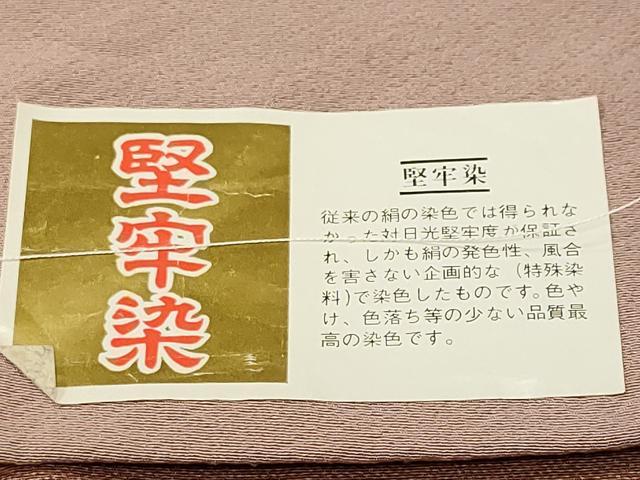 堅牢染
堅牢染
従来の絹の染色では得られな
かった対日光堅牢度が保証さ
れ、しかも絹の発色性、風合
を害さない企画的な（特殊染
料）で染色したものです。色や
け、色落ち等の少ない品質最
高の染色です。